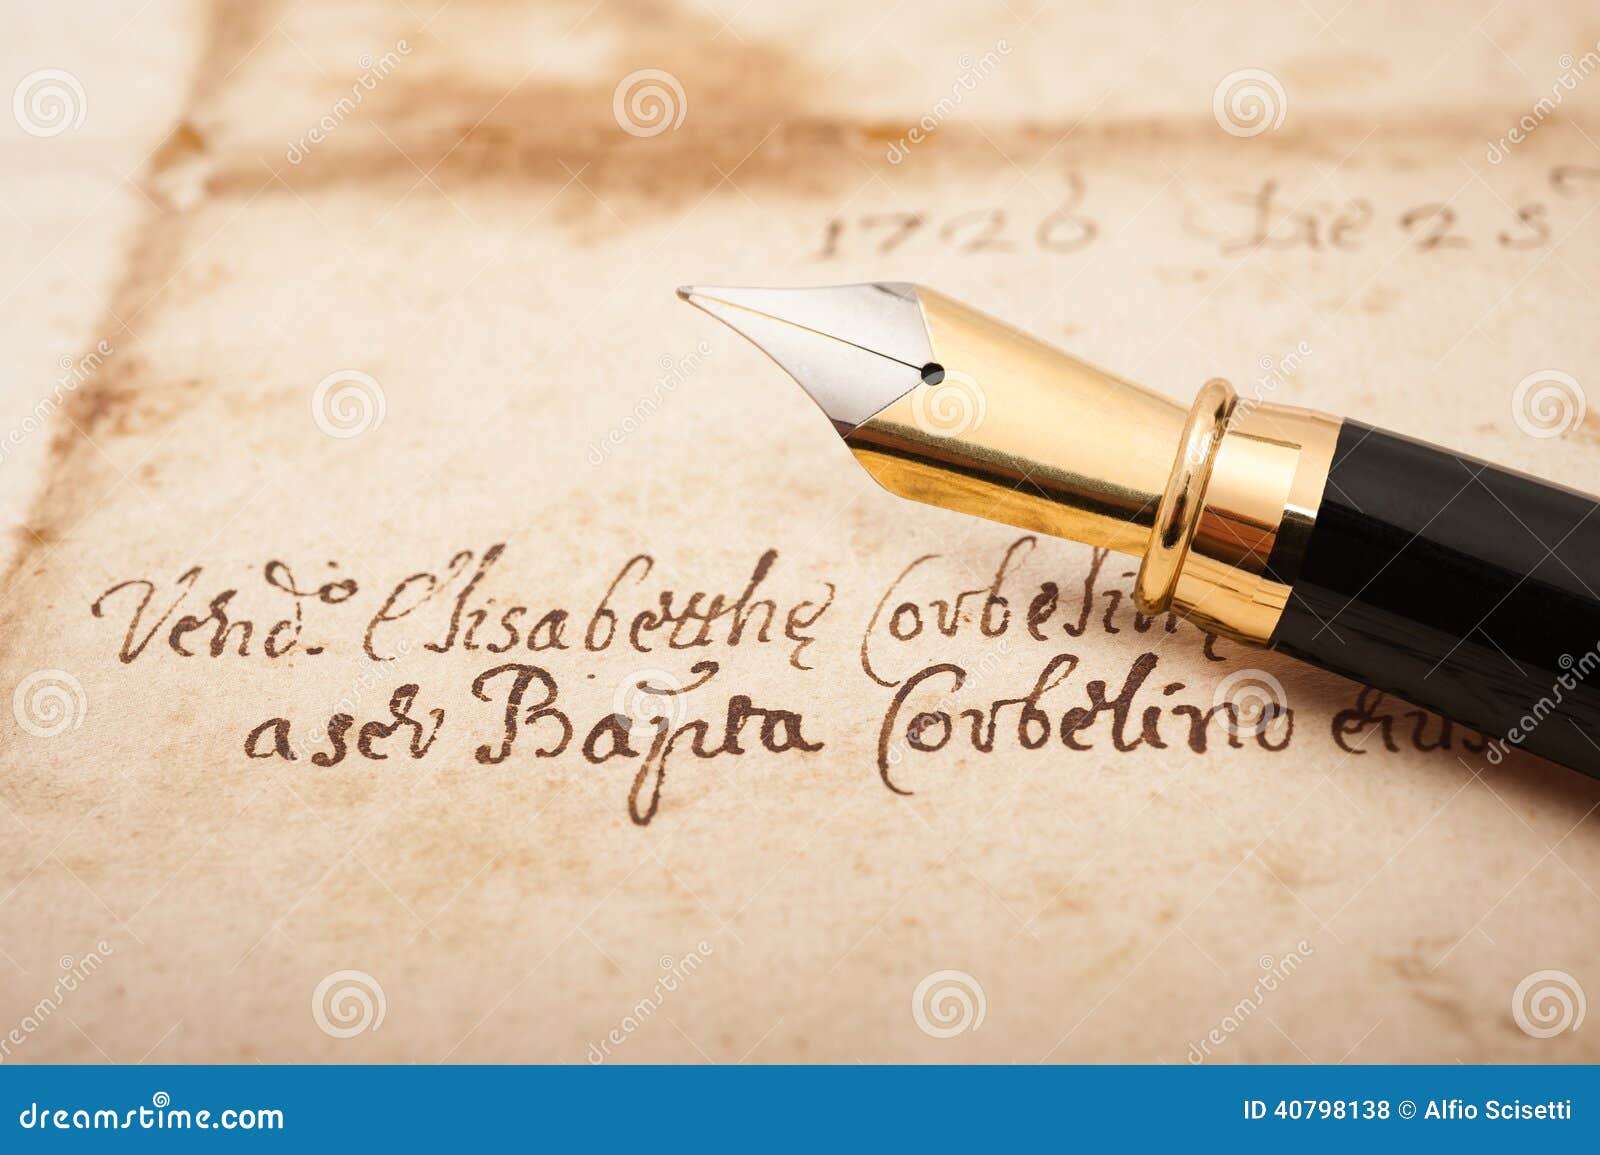 1726 Die 25
Vend.o Elisabetthę Corbelinę
a ser Bapta Corbelino eius
dreamstime.com
ID 40798138 © Alfio Scisetti